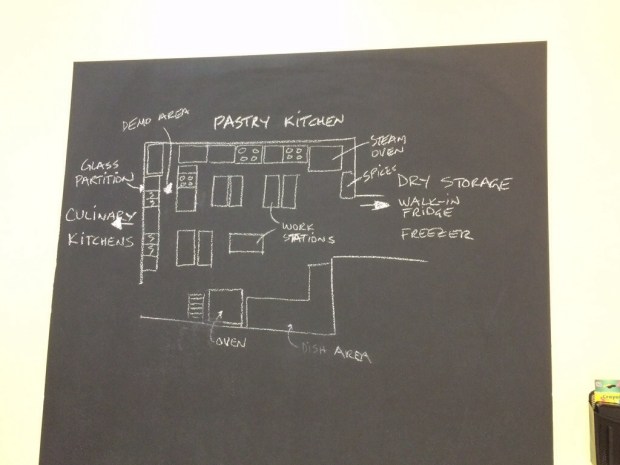 DEMO AREA
PASTRY KITCHEN
STEAM
OVEN
GLASS
PARTITION
SPICES
DRY STORAGE
WALK-IN
FRIDGE
FREEZER
CULINARY
KITCHENS
WORK
STATIONS
OVEN
DISH AREA